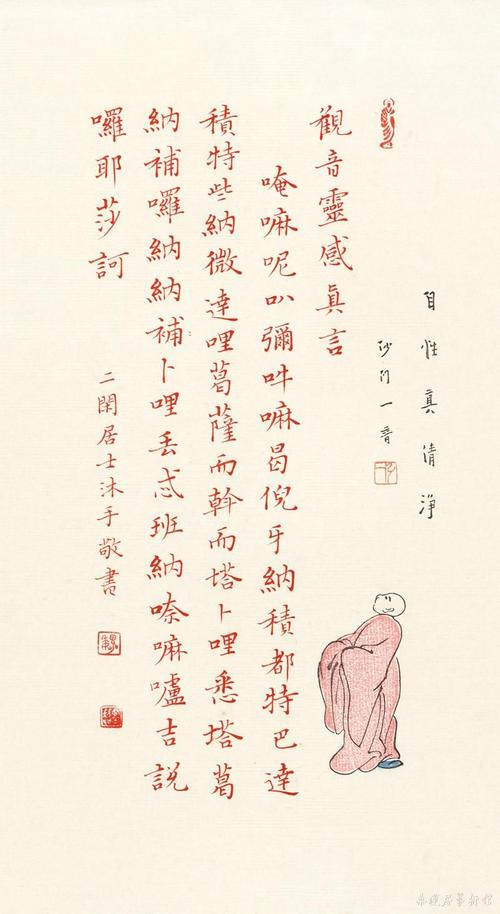 自性真清淨
沙門一音
觀音靈感眞言
唵嘛呢叭彌吽嘛曷倪牙納積都特巴達
積特些納微達哩葛薩而斡而塔卜哩悉塔葛
納補囉納納補卜哩丟忒班納嘛嚧吉説
囉耶莎訶
二閑居士沐手敬書